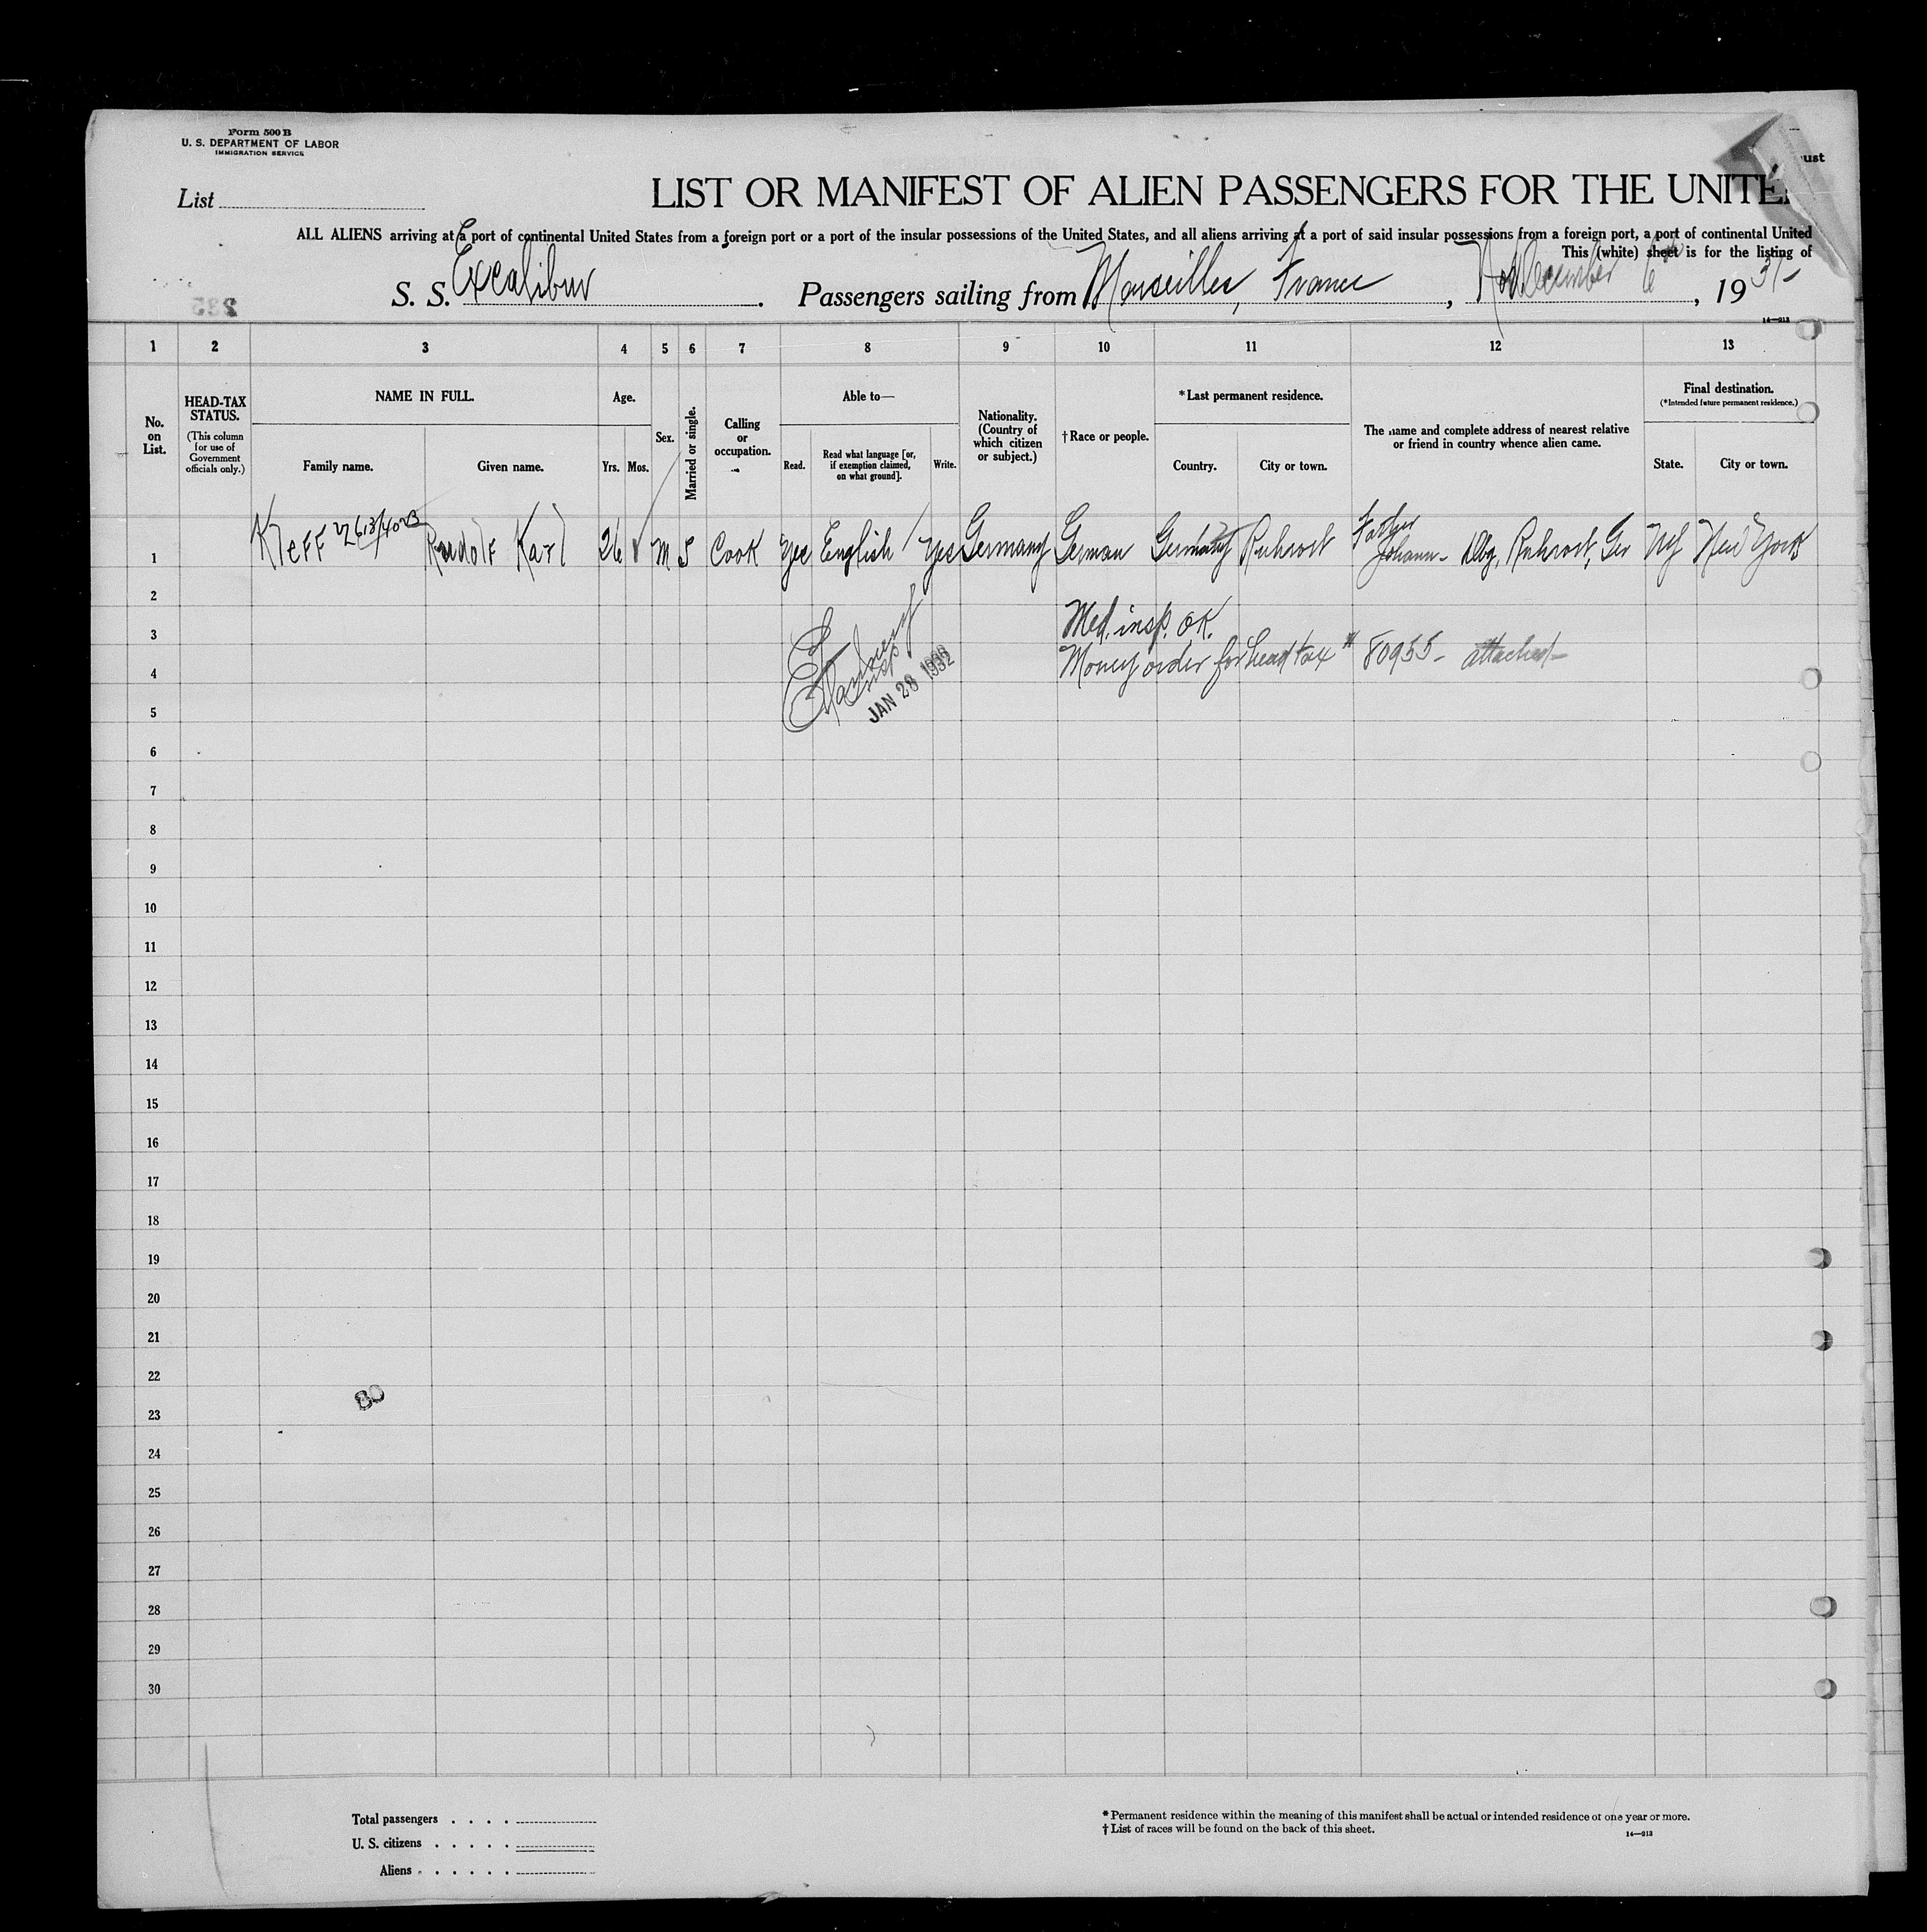 Form 500 B
U. S. DEPARTMENT OF LABOR
IMMIGRATION SERVICE
ust
List
LIST OR MANIFEST OF ALIEN PASSENGERS FOR THE UNITE
ALL ALIENS arriving at a port of continental United States from a foreign port or a port of the insular possessions of the United States, and all aliens arriving at a port of said insular possessions from a foreign port, a port of continental United
This (white) sheet is for the listing of
S. S. Excalibur. Passengers sailing from Marseilles, France, December 6th, 1931-
14—213
1 2 3 4 5 6 7 8 9 10 11 12 13
No. on List.
HEAD-TAX STATUS.
(This column for use of Government officials only.)
NAME IN FULL.
Family name. Given name.
Age.
Yrs. Mos.
Sex.
Married or single.
Calling or occupation.
Able to—
Read. Read what language [or, if exemption claimed, on what ground]. Write.
Nationality. (Country of which citizen or subject.)
† Race or people.
*Last permanent residence.
Country. City or town.
The name and complete address of nearest relative or friend in country whence alien came.
Final destination.
(*Intended future permanent residence.)
State. City or town.
1 Kleff Rudolf Karl 26 M S Cook yes English yes Germany German Germany Ruhrort Father Johann- Dbg, Ruhrort, Ger NY New York
2
3 Med. insp. OK.
4 Money order for head tax # 80955- attached-
JAN 28 1932
5
6
7
8
9
10
11
12
13
14
15
16
17
18
19
20
21
22
80
23
24
25
26
27
28
29
30
Total passengers . . . .
U. S. citizens . . . . .
Aliens . . . . . .
* Permanent residence within the meaning of this manifest shall be actual or intended residence of one year or more.
† List of races will be found on the back of this sheet.
14—213